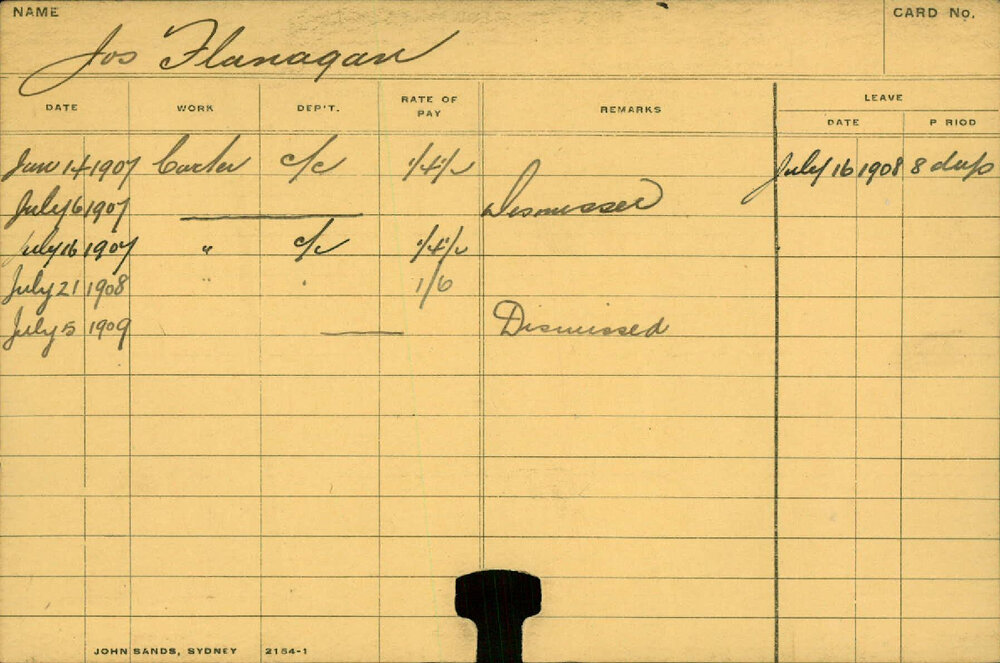 NAME CARD No.
Jos Flanagan
DATE WORK DEP'T. RATE OF PAY REMARKS LEAVE
DATE P RIOD
Jan 14 1907 Carter c/c 1/4½ July 16 1908 8 days
July 6 1907 Dismissed
July 16 1907 " c/c 1/4½
July 21 1908 " " 1/6
July 5 1909 Dismissed
JOHN SANDS, SYDNEY 2154-1